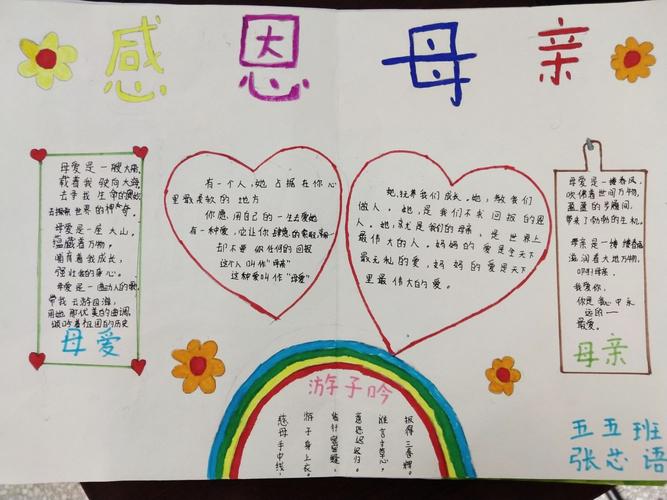 感恩母亲
母爱是一艘大船,
载着我驶向大海,
去寻我生命的奥妙
去探索世界的神奇。
母爱是一座大山,
蕴藏着万物,
哺育着我成长,
强壮着的身心。
母爱是一曲动人的歌,
带我云游四海,
用她那优美的曲调,
歌吟着祖国的历史
母爱
有一个人,她占据在你心
里最柔软的地方
你愿用自己的一生去爱她
有一种爱,它让你肆意的索取,
却不要你任何的回报
这个人叫作“母亲”
这种爱叫作“母爱”
她,抚养我们成长。她,教我们
做人。她,是我们不求回报的恩
人。她,就是我们的母亲,是世界上
最伟大的人。妈妈的爱是全天下
最无私的爱,妈妈的爱是天下
里最伟大的爱。
母爱是一缕春风,
吹拂着世间万物,
带来了勃勃的生机。
母亲是一捧
滋润着大地万物,
母亲,
我爱你,
你是我心中永
远的一
最爱。
母亲
游子吟
慈母手中线,
游子身上衣。
临行密密缝,
意恐迟迟归。
谁言寸草心,
报得三春晖。
五五班
张芯语